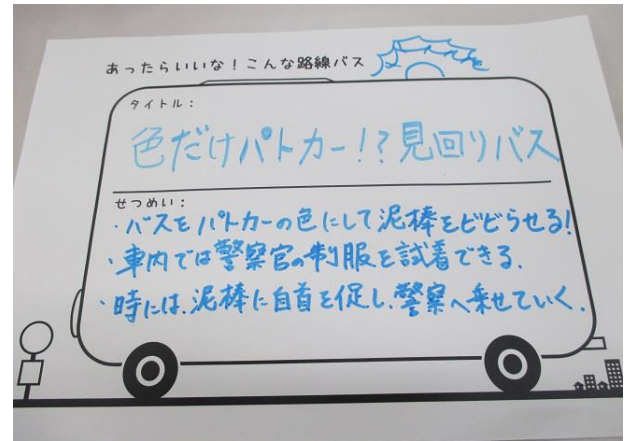 あったらいいな！こんな路線バス
タイトル：
色だけパトカー！？見回りバス
せつめい：
・バスをパトカーの色にして泥棒をビビらせる！
・車内では警察官の制服を試着できる．
・時には、泥棒に自首を促し、警察へ乗せていく．